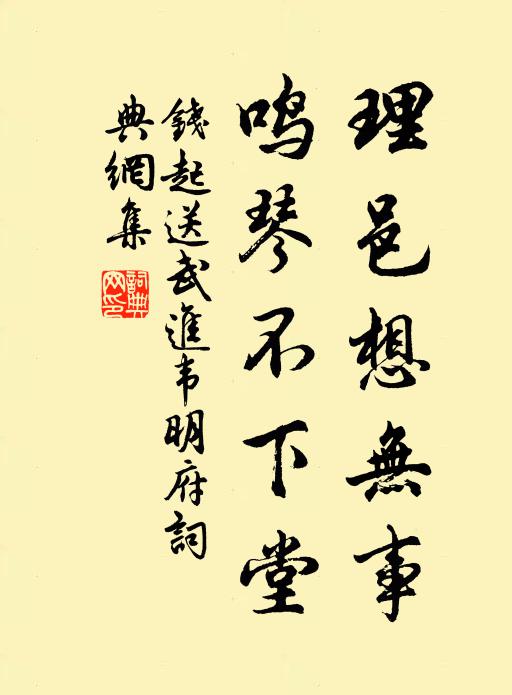 理邑想無事
鳴琴不下堂
錢起送武進韦明府詞
典網集
詞典網印